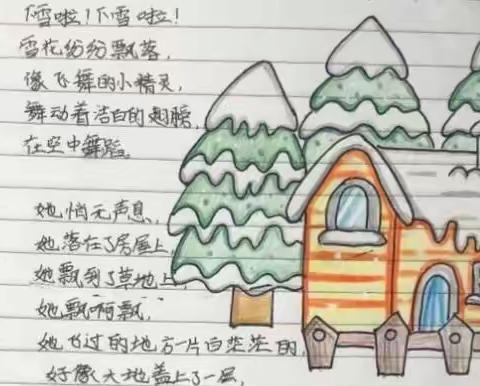 下雪啦！下雪啦！
雪花纷纷飘落，
像飞舞的小精灵，
舞动着洁白的翅膀，
在空中舞蹈。
她悄无声息，
她落在了房屋上
她飘到了草地上
她飘啊飘，
她飞过的地方一片白茫茫的，
好像大地盖上了一层，